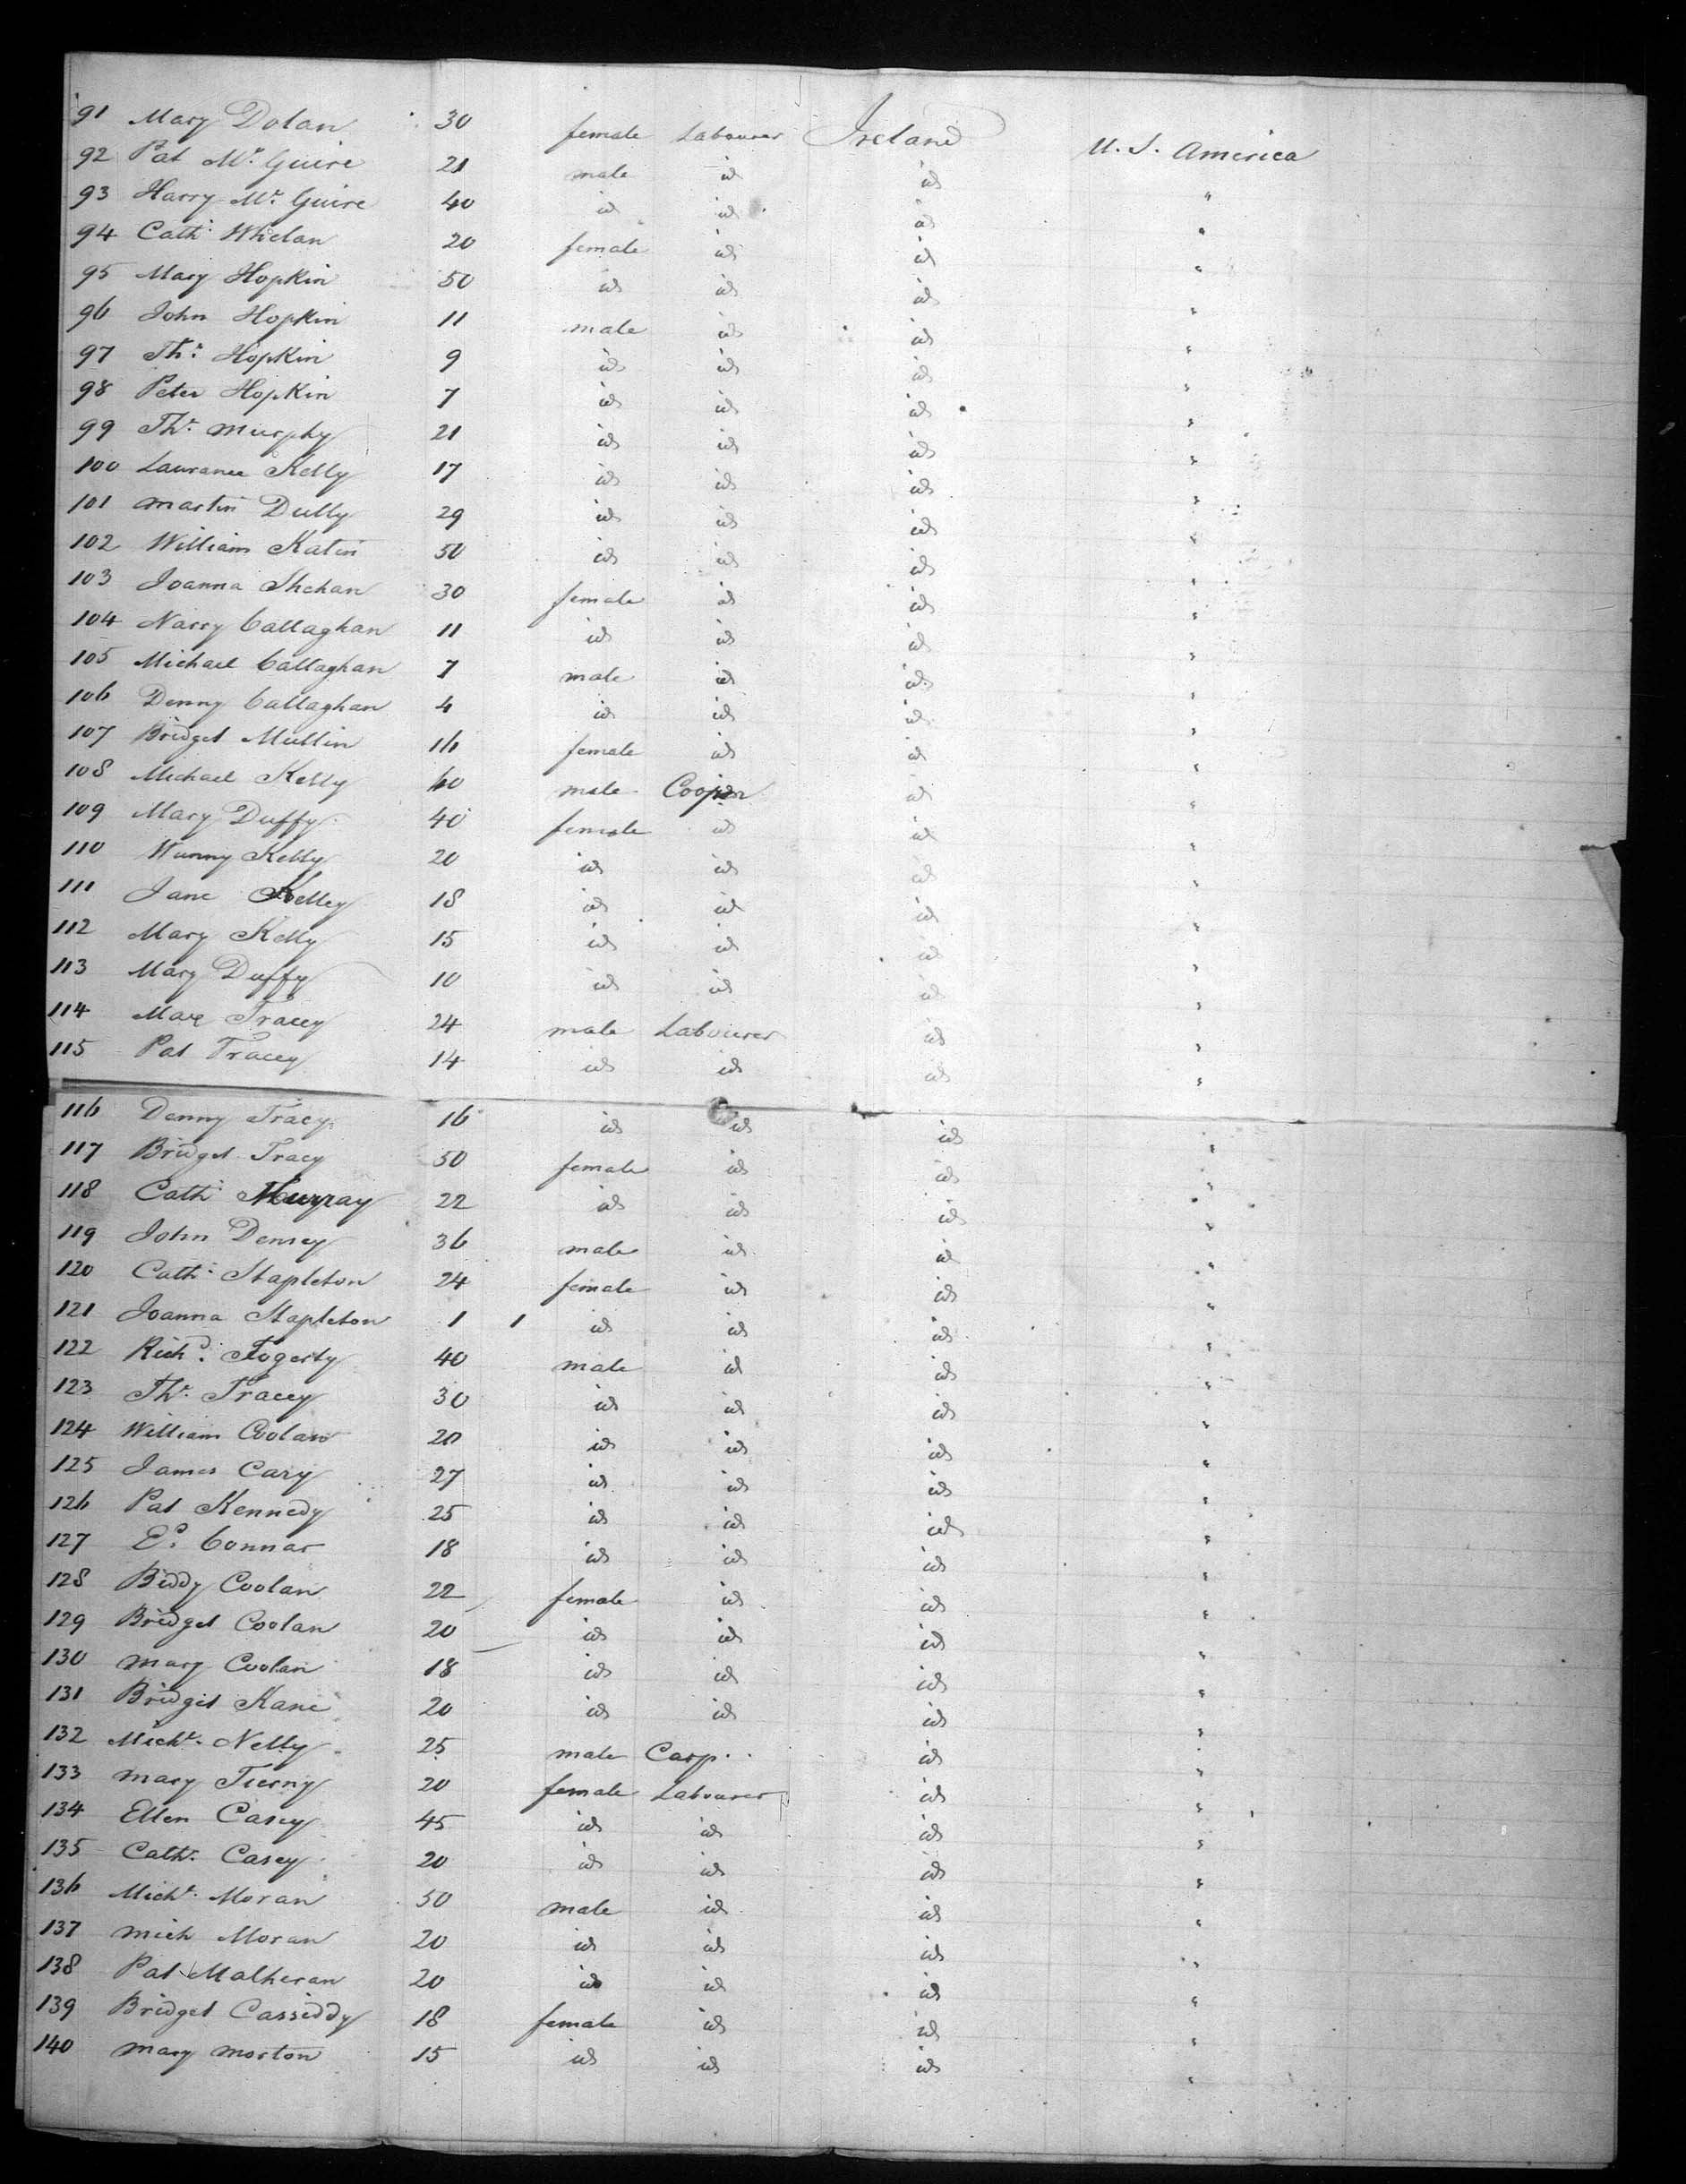 91 Mary Dolan 30 female Labourer Ireland U.S. America
92 Pat Mc Guire 21 male id id "
93 Harry Mc Guire 40 id id id "
94 Cath: Whelan 20 female id id "
95 Mary Hopkin 50 id id id "
96 John Hopkin 11 male id id "
97 Ths: Hopkin 9 id id id "
98 Peter Hopkin 7 id id id "
99 Ths. Murphy 21 id id id "
100 Laurance Kelly 17 id id id "
101 Martin Dully 29 id id id "
102 William Katin 50 id id id "
103 Joanna Shehan 30 female id id "
104 Narry Callaghan 11 id id id "
105 Michael Callaghan 7 male id id "
106 Denny Callaghan 4 id id id "
107 Bridget Mullin 16 female id id "
108 Michael Kelly 40 male Cooper id "
109 Mary Duffy 40 female id id "
110 Wunny Kelly 20 id id id "
111 Jane Kelley 18 id id id "
112 Mary Kelly 15 id id id "
113 Mary Duffy 10 id id id "
114 Tracey 24 male Labourer id "
115 Pat Tracey 14 id id id "
116 Denny Tracy 16 id id id "
117 Bridget Tracy 50 female id id "
118 Cath: Murray 22 id id id "
119 John Demsey 36 male id id "
120 Cath: Stapleton 24 female id id "
121 Joanna Stapleton 1 1 id id id "
122 Richd: Fogerty 40 male id id "
123 Ths. Tracey 30 id id id "
124 William Coolan 20 id id id "
125 James Cary 27 id id id "
126 Pat Kennedy 25 id id id "
127 Ed. Connar 18 id id id "
128 Biddy Coolan 22 female id id "
129 Bridget Coolan 20 id id id "
130 Mary Coolan 18 id id id "
131 Bridgit Kane 20 id id id "
132 Michl. Nelly 25 male Carp. id "
133 Mary Tierny 20 female Labourer id "
134 Ellen Casey 45 id id id "
135 Cath. Casey 20 id id id "
136 Michl. Moran 50 male id id "
137 Mich Moran 20 id id id "
138 Pat Malheran 20 id id id "
139 Bridget Cassiddy 18 female id id "
140 Mary Morton 15 id id id "